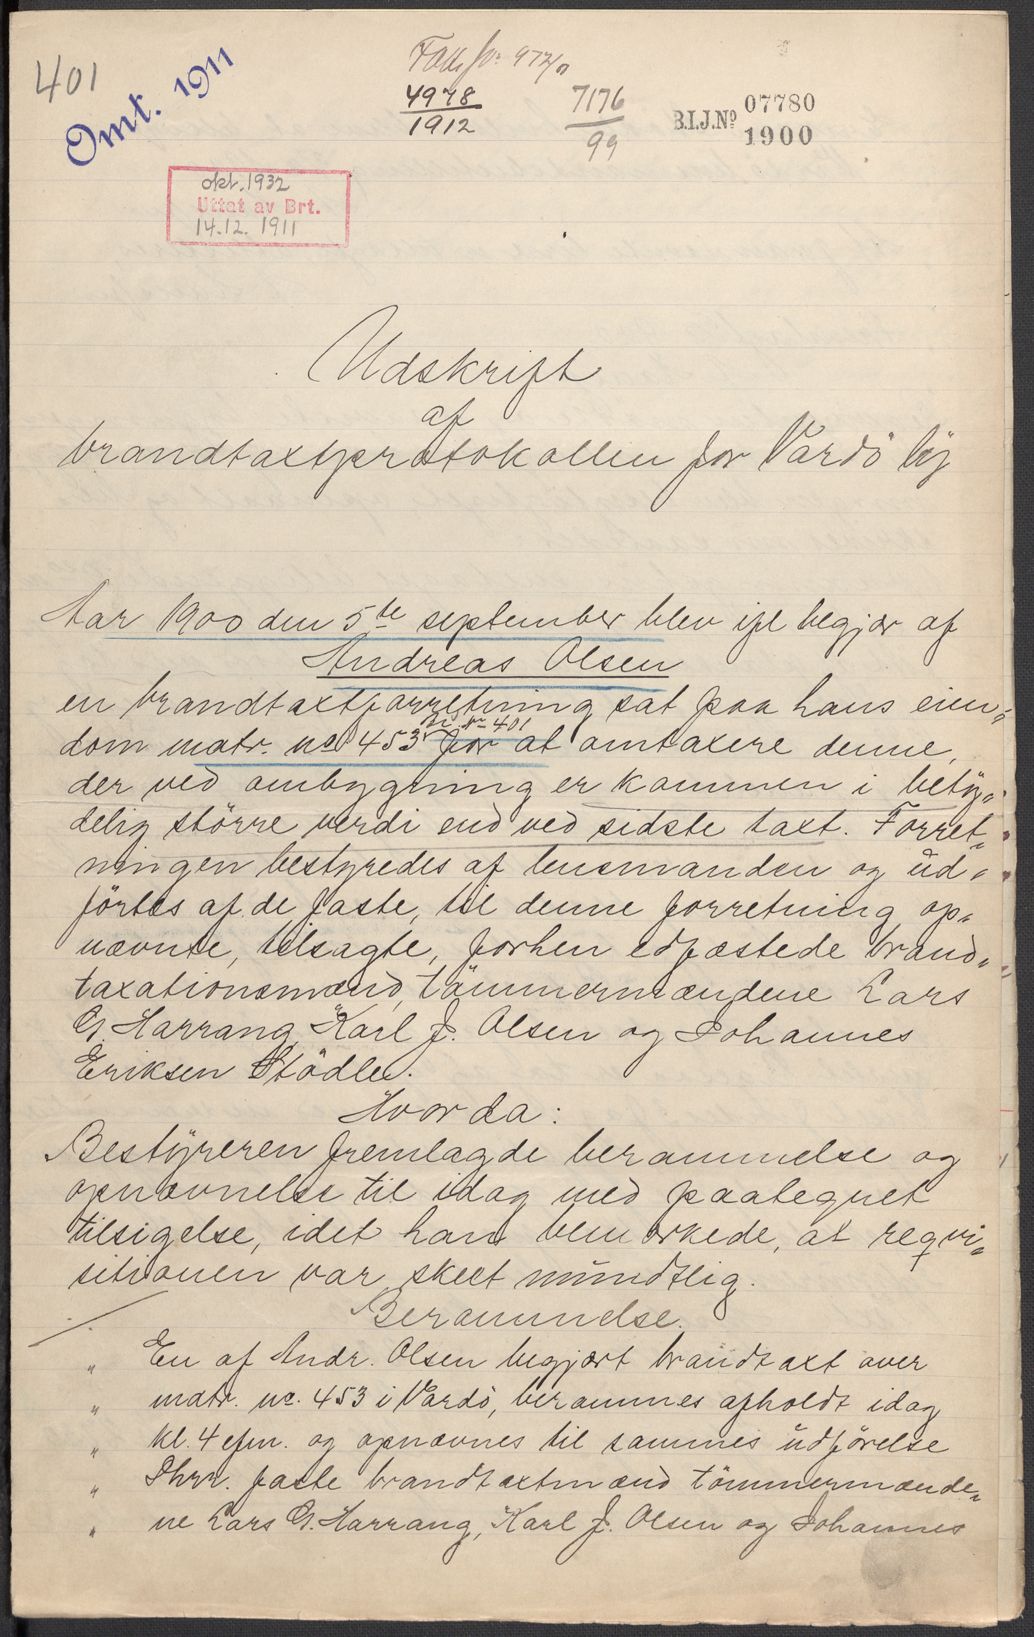 401
Omt. 1911
4978
1912
7176
99
B.I.J.No 07780
1900
okt. 1932
Uttat av Brt.
14.12. 1911
Udskrift
af
brandtaxtprotokollen for Vardö by
Aar 1900 den 5te september blev ifl begjær af
Andreas Olsen
en brandtaxtforretning sat paa hans eien-
Br. Nr 401
dom matr. no 453 for at omtaxere denne,
der ved ombygning er kommen i bety-
delig större verdi end ved sidste taxt. Forret-
ningen bestyredes af lensmanden og ud-
förtes af de faste, til denne forretning op-
nævnte, tilsagte, forhen edfæstede brand-
taxationsmænd, tömmermændene Lars
G. Harrang, Karl J. Olsen og Johannes
Eriksen Stödle.
Hvorda:
Bestyreren fremlagde berammelse og
opnævnelse til idag med paategnet
tilsigelse, idet han bemærkede, at reqvi-
sitionen var skeet mundtlig.
Berammelse.
" En af Andr. Olsen begjært brandtaxt over
" matr. no. 453 i Vardö, berammes afholdt idag
" kl. 4 efm. og opnævnes til sammes udförelse
" Dhrr. faste brandtaxtmænd tömmermænde-
" ne Lars G. Harrang, Karl J. Olsen og Johannes